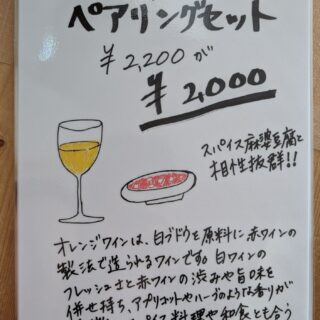 ペアリングセット
¥2,200が
¥2,000
スパイス麻婆豆腐と
相性抜群!!
オレンジワインは、白ブドウを原料に赤ワインの
製法で造られるワインです。白ワインの
フレッシュさと赤ワインの渋みや旨味を
併せ持ち、アプリコットやハーブのような香りが
スパイス料理や和食とも合う